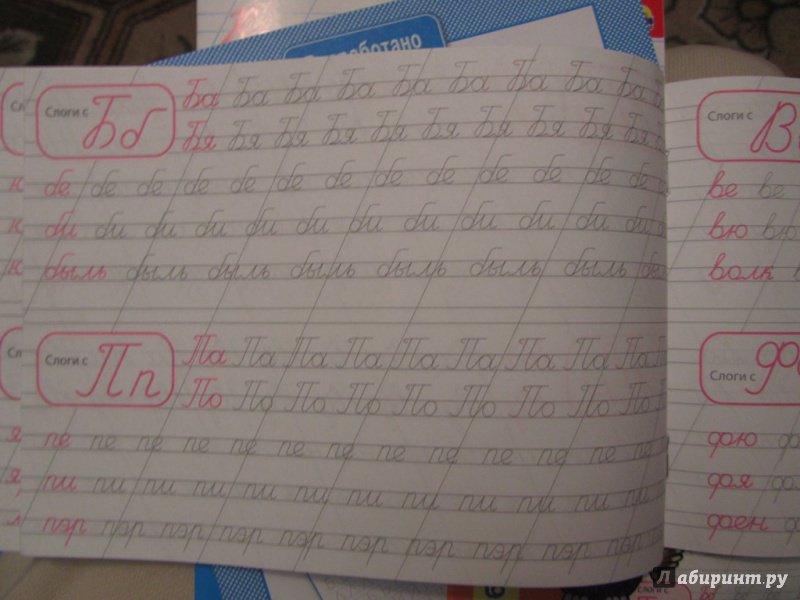 Слоги с Бб
Ба Ба Ба Ба Ба Ба Ба Ба Ба
Бя Бя Бя Бя Бя Бя Бя Бя Бя Бя
бе бе бе бе бе бе бе бе бе бе бе бе
би би би би би би би би би би би
быль быль быль быль быль быль быль
Слоги с Пп
Па Па Па Па Па Па Па Па
По По По По По По По По По
пе пе пе пе пе пе пе пе пе пе пе пе
пи пи пи пи пи пи пи пи пи пи пи пи
пэр пэр пэр пэр пэр пэр пэр пэр пэр пэр
Слоги с В
ве ве
вю вю
волк
Слоги с
фю
фя
фен
Лабиринт.ру